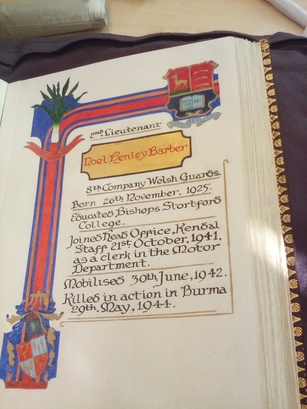 2nd Lieutenant
Noel Henley Barber
8th Company Welsh Guards.
Born 26th November, 1925.
Educated Bishops Stortford
College.
Joined Head Office, Kendal
Staff 21st October, 1941,
as a clerk in the Motor
Department.
Mobilised 30th June, 1942.
Killed in action in Burma
29th, May, 1944.